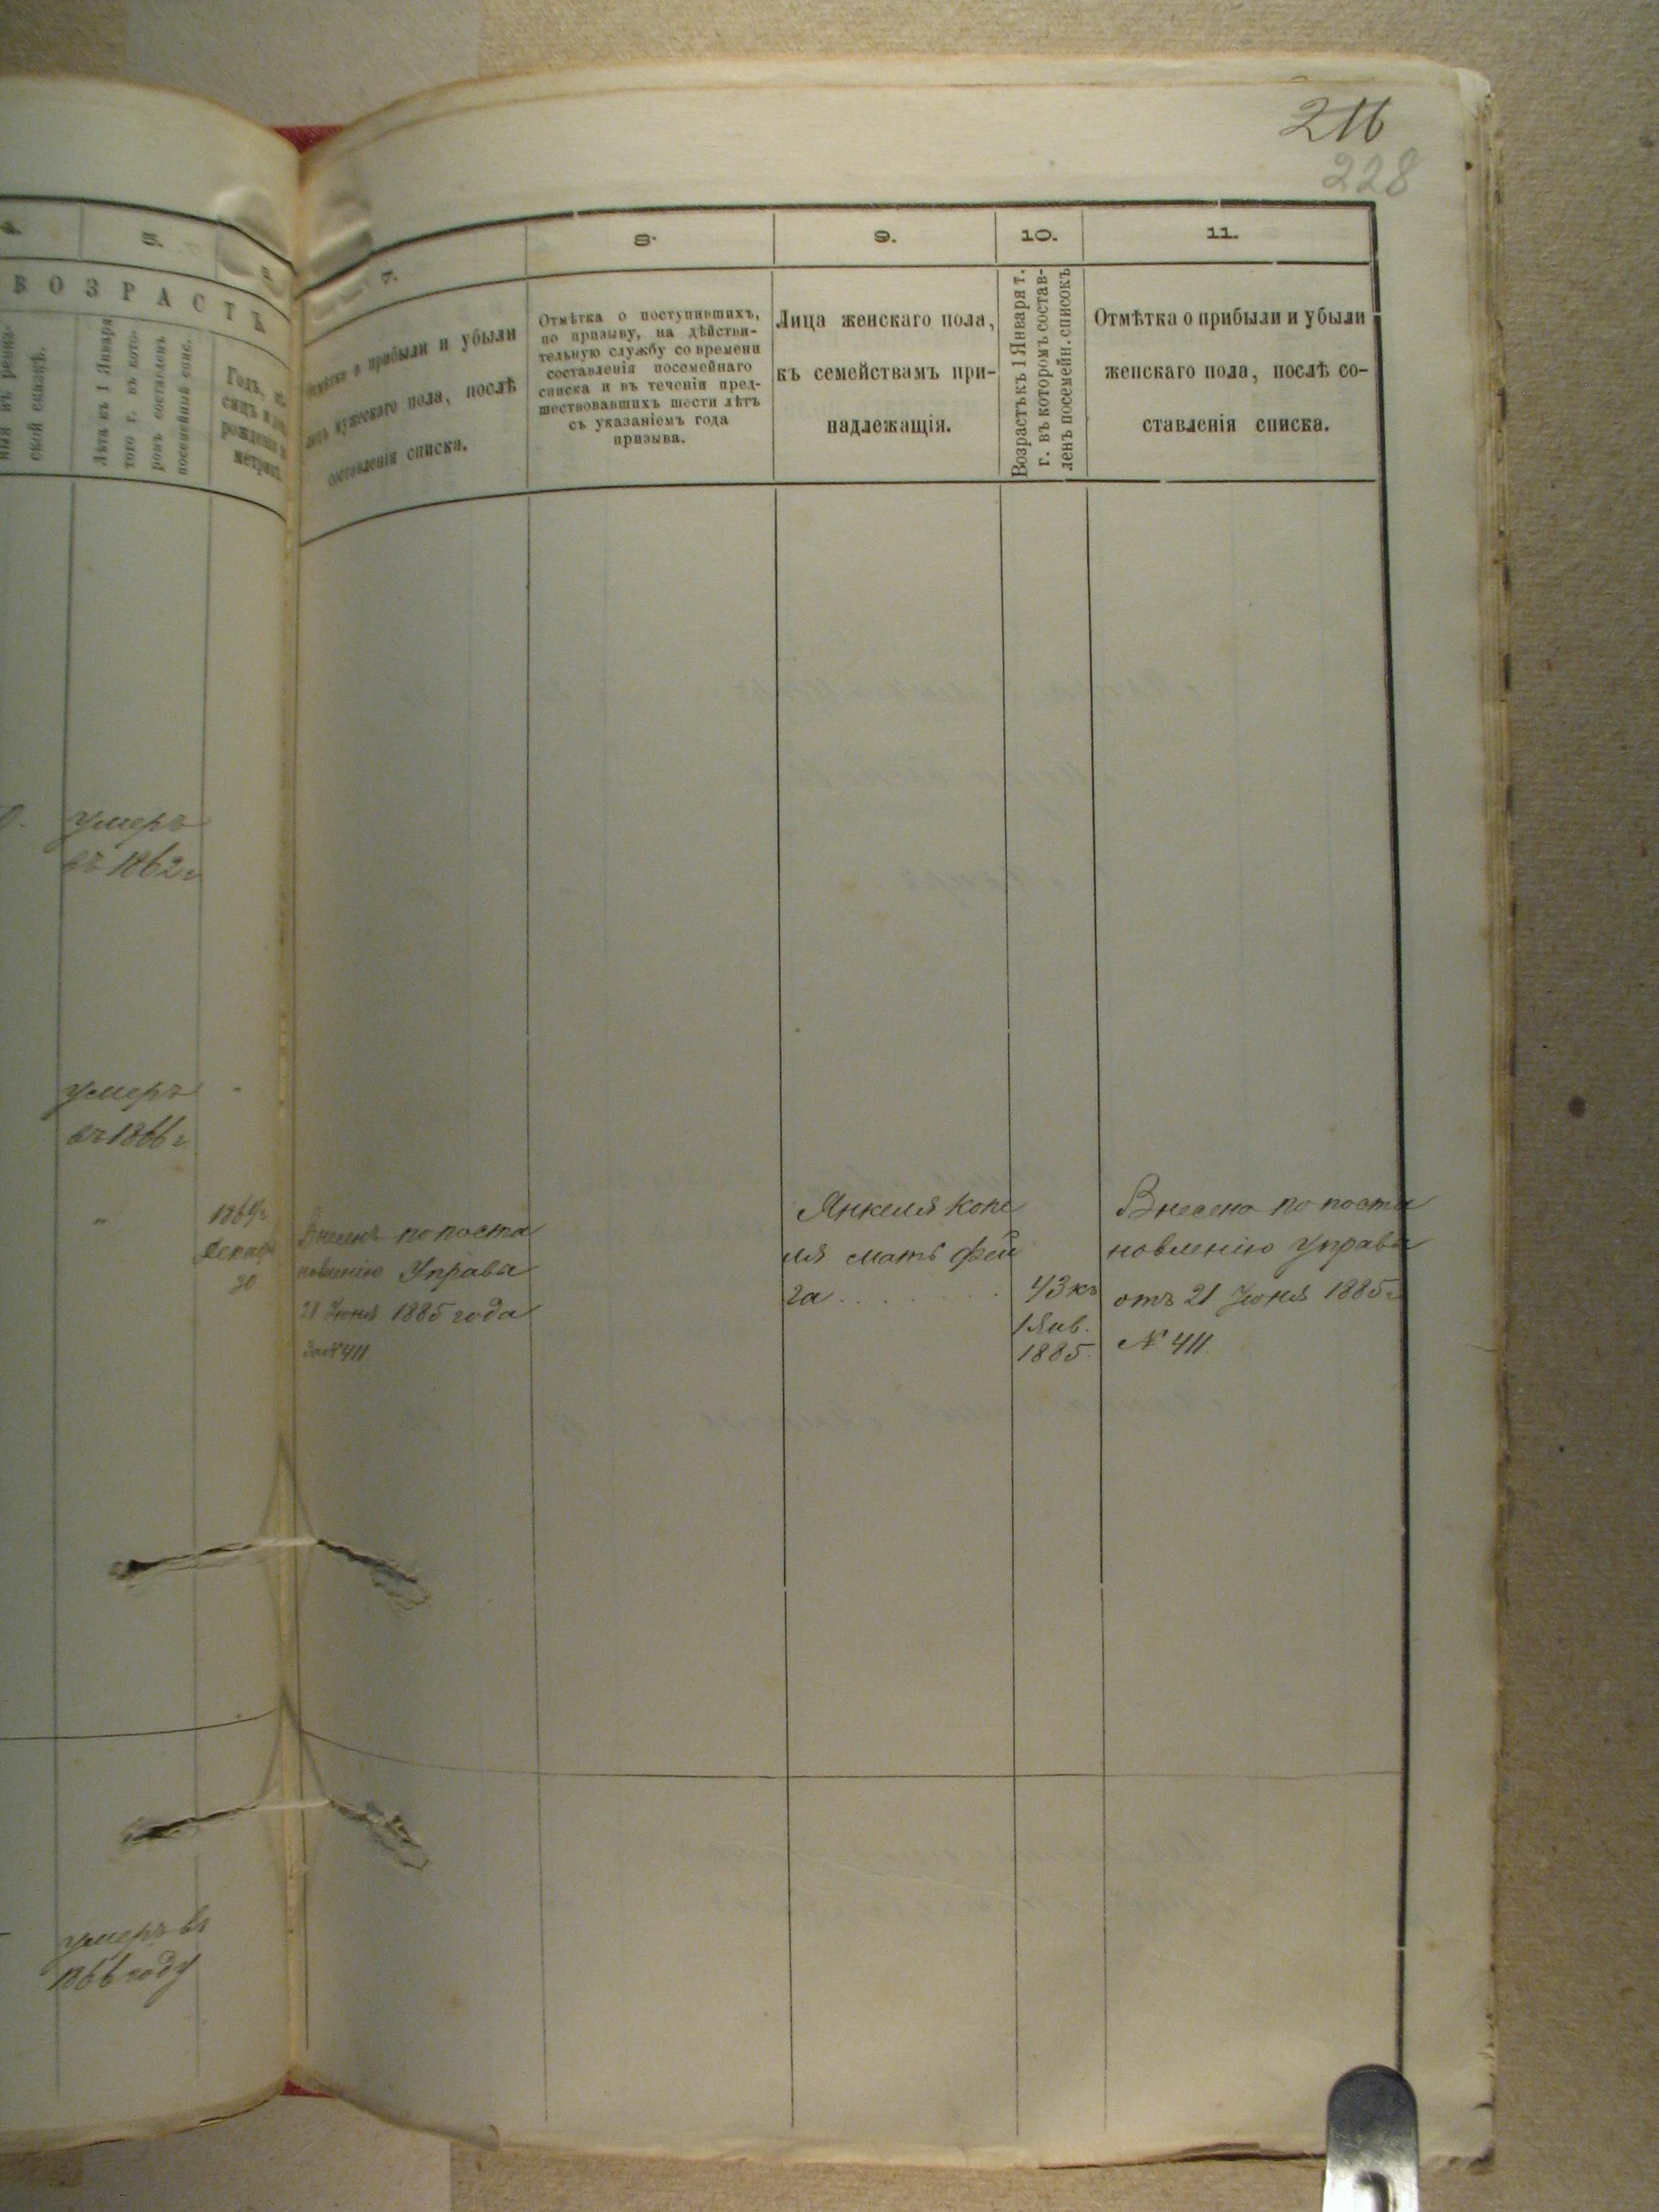 216
228
5.
В О З Р А С Т Ъ
ской сказкѣ.
Лѣта къ 1 Января
того г. въ кото-
ромъ составленъ
посемейный спис.
Годъ, мѣ-
сяцъ и день
рожденія по
метрикѣ
умеръ
въ 1862 г.
умеръ
въ 1866 г.
"
1869 г.
Декабр
30
умеръ въ
1866 году
7.
Отмѣтка о прибыли и убыли
лицъ мужескаго пола, послѣ
составленія списка.
8.
Отмѣтка о поступившихъ,
по призыву, на дѣйстви-
тельную службу со времени
составленія посемейнаго
списка и въ теченіи пред-
шествовавшихъ шести лѣтъ
съ указаніемъ года
призыва.
9.
Лица женскаго пола,
къ семействамъ при-
надлежащія.
10.
Возрастъ къ 1 Января т.
г. въ которомъ состав-
ленъ посемейн. списокъ
11.
Отмѣтка о прибыли и убыли
женскаго пола, послѣ со-
ставленія списка.
Внесенъ по поста
новленію Управы
21 Іюня 1885 года
за № 411
Янкеля Копе
ля мать Фей
га . . . . . .
43 къ
1 Янв.
1885.
Внесена по поста
новленію Управы
отъ 21 Іюня 1885 г.
№ 411.